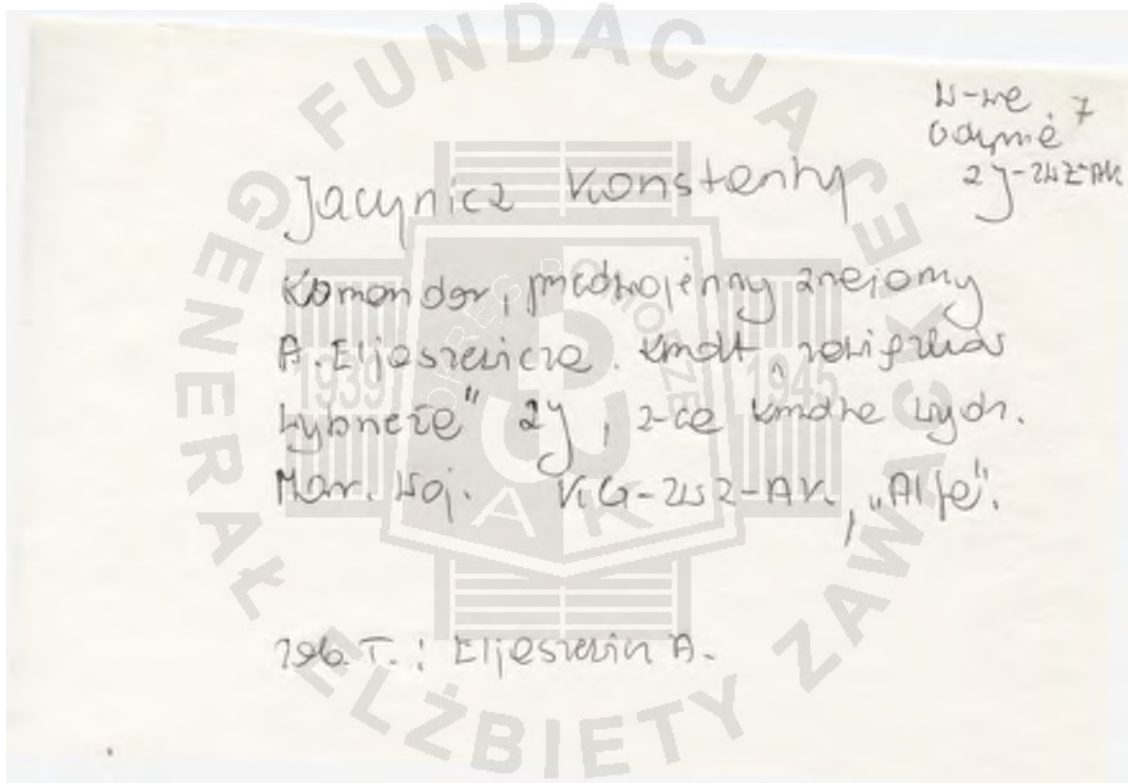 W-wa, 7
Gdynia
ZJ-ZWZ-AK
Jacynicz Konstanty
Komandor, przedwojenny znajomy
A. Eljaszewicza. Kmdt „
Wybrzeże" ZJ, z-ca kmdta Wydz.
Mar. Woj. KG-ZWZ-AK, „Alfa".
Zob. T.: Eljaszewicz A.
FUNDACJA
GENERAŁ ELŻBIETY ZAWACKIEJ
ARCHIWUM POMORZE
1939 1945
AK